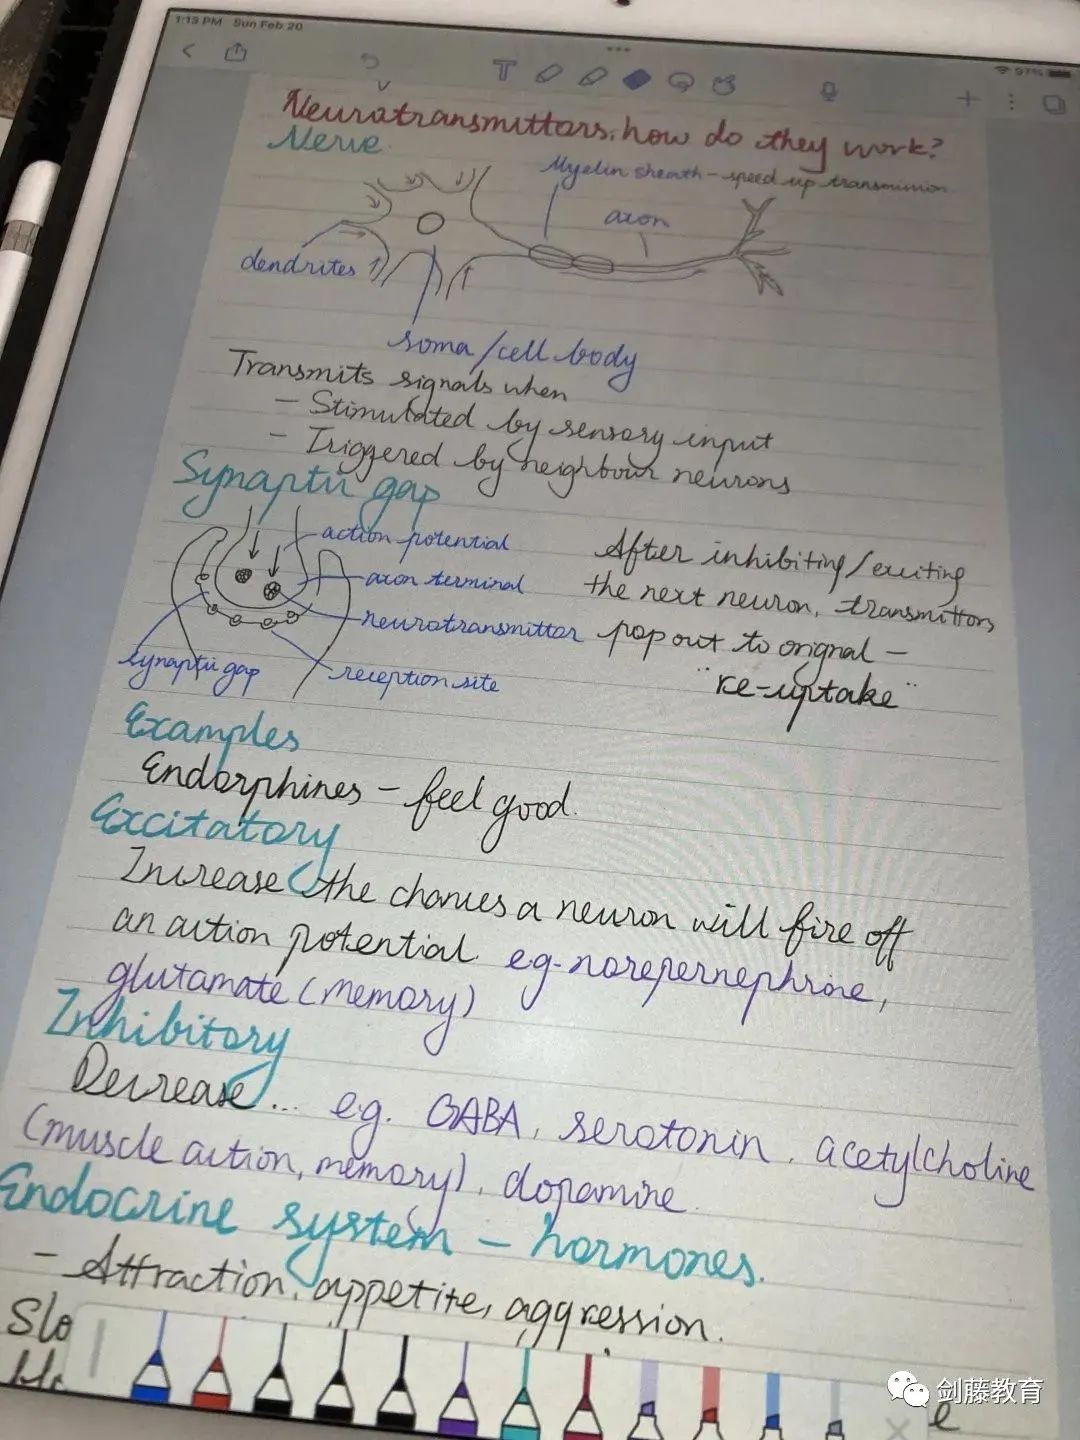 1:13 PM Sun Feb 20
97%
Neurotransmittors: how do they work?
Nerve
Myelin sheath - speed up transmission
axon
dendrites
soma/cell body
Transmits signals when
- Stimulated by sensory input
- Triggered by neighbour neurons
Synaptic gap
action potential
axon terminal
neurotransmitter
synaptic gap
reception site
After inhibiting/exciting
the next neuron, transmittors
pop out to orignal -
"re-uptake"
Examples
Endorphines - feel good.
Excitatory
Increase the chances a neuron will fire off
an action potential. eg. norepernephrine,
glutamate (memory)
Inhibitory
Decrease... e.g. GABA, serotonin, acetylcholine
(muscle action, memory), dopamine.
Endocrine system - hormones.
- Attraction, appetite, aggression.
Slo
e
剑藤教育